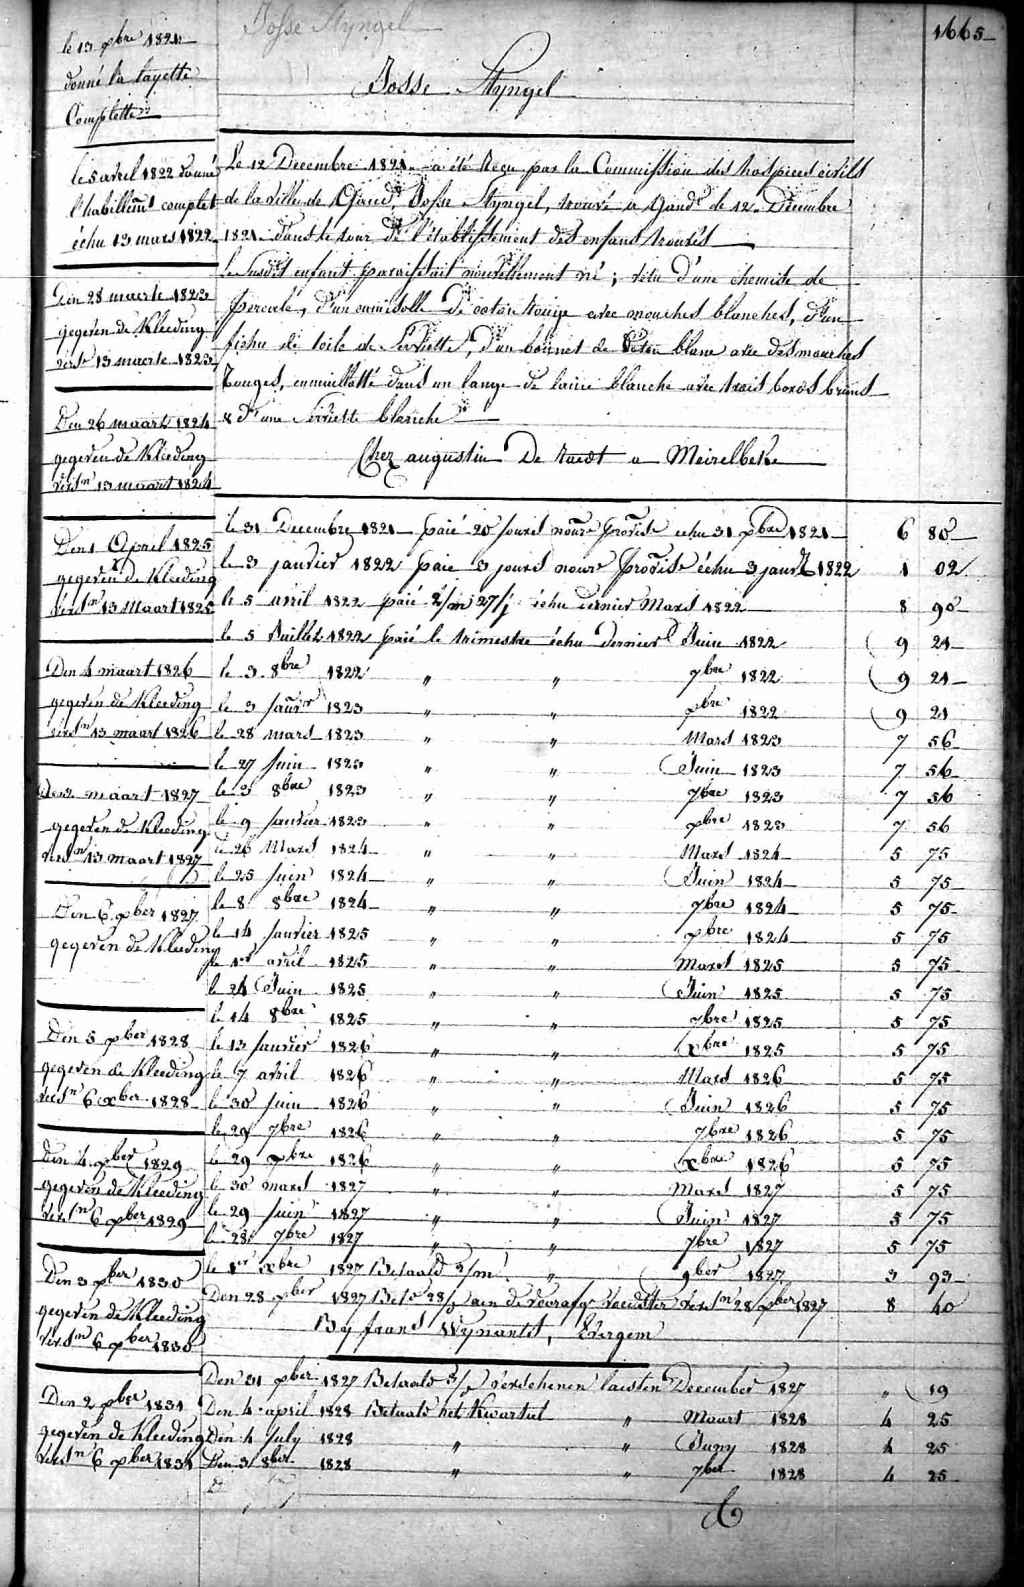 Josse Styngel
1665
Josse Styngel
le 13 xbre 1821
donné la layette
Complette
le 5 avril 1822 donné
l'habillemt complet
échu 13 mars 1822
Den 28 maerte 1823
gegeven de Kleeding
verst 13 maerte 1823
Den 26 maart 1824
gegeven de Kleeding
versn 13 maart 1824
Den 1 April 1825
gegeven de Kleeding
versn 13 Maart 1825
Den 4 maart 1826
gegeven de Kleeding
versn 13 maart 1826
Den 2 maart 1827
gegeven de Kleeding
versn 13 maart 1827
Den 6 xber 1827
gegeven de Kleeding
Den 5 xber 1828
gegeven de Kleeding
versn 6 xber 1828
Den 4 xber 1829
gegeven de Kleeding
versn 6 xber 1829
Den 3 xber 1830
gegeven de Kleeding
versn 6 xber 1830
Den 2 xber 1831
gegeven de Kleeding
versn 6 xber 1831
Le 12 Decembre 1821 a été Reçu par la Commission des hospices civils
de la ville de Gand, Josse Styngel, trouvé a Gand le 12 Décembre
1821 dans le tour de l'établissement des enfans trouvés
Le Susdit enfant paraissait nouvellement né ; vetu d'une chemise de
percale, d'un camisolle de coton Rouge avec mouches blanches, d'un
fichu de toile de Serviette, d'un bonnet de Coton blanc avec des mouches
Rouges, emmaillotté dans un lange de laine blanche avec trois bords bruns
& d'une Serviette blanche
Chez augustin De Raedt a Meirelbeke
le 31 Decembre 1821 paié 20 jours nourre provise echu 31 xbre 1821 6 80
le 3 janvier 1822 paié 3 jours nourre provise échu 3 janvr 1822 1 02
le 5 avril 1822 paié 2/m 27/j échu dernier Mars 1822 8 90
le 5 Juillet 1822 paié le trimestre échu dernier Juin 1822 9 21
le 3 8bre 1822 " " 7bre 1822 9 21
le 3 Janvr 1823 " " xbre 1822 9 21
le 28 mars 1823 " " Mars 1823 7 56
le 27 Juin 1823 " " Juin 1823 7 56
le 3 8bre 1823 " " 7bre 1823 7 56
le 9 Janvier 1823 " " xbre 1823 7 56
le 26 Mars 1824 " " Mars 1824 5 75
le 25 Juin 1824 " " Juin 1824 5 75
le 8 8bre 1824 " " 7bre 1824 5 75
le 14 Janvier 1825 " " xbre 1824 5 75
le 1er avril 1825 " " Mars 1825 5 75
le 24 Juin 1825 " " Juin 1825 5 75
le 14 8bre 1825 " " 7bre 1825 5 75
le 13 Janvier 1826 " " xbre 1825 5 75
le 7 avril 1826 " " Mars 1826 5 75
le 30 Juin 1826 " " Juin 1826 5 75
le 29 7bre 1826 " " 7bre 1826 5 75
le 29 xbre 1826 " " xbre 1826 5 75
le 30 mars 1827 " " Mars 1827 5 75
le 29 Juin 1827 " " Juin 1827 5 75
le 28 7bre 1827 " " 7bre 1827 5 75
le 1er xbre 1827 Betaald 2/m " 9ber 1827 3 93
Den 28 xber 1827 28/ aen de versn 28 xber 1827 8 40
By frans Wynants, Evergem
Den 31 xber 1827 Betaald 3/ verschenen laesten December 1827 " 19
Den 4 april 1828 Betaald het Kwartal " Maart 1828 4 25
Den 4 July 1828 " " Juny 1828 4 25
Den 3 8ber 1828 " " 7ber 1828 4 25